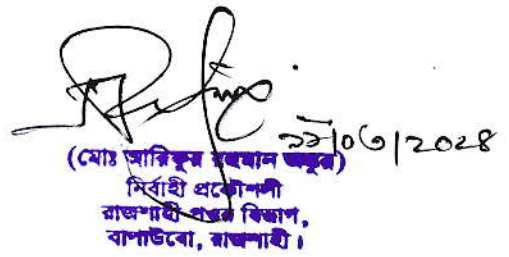 ১১/০৩/২০২৪
(মোঃ আরিফুর রহমান অঙ্কুর)
নির্বাহী প্রকৌশলী
রাজশাহী পওর বিভাগ,
বাপাউবো, রাজশাহী।